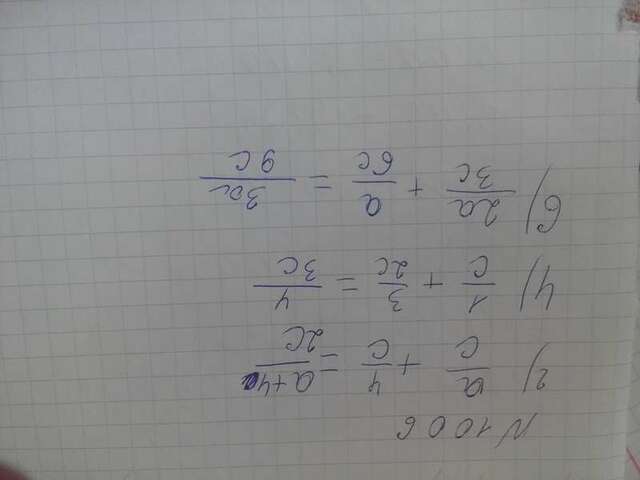 N 1006
2) a/c + 4/c = a+4/2c
4) 1/c + 3/2c = 4/3c
6) 2a/3c + a/6c = 3a/9c